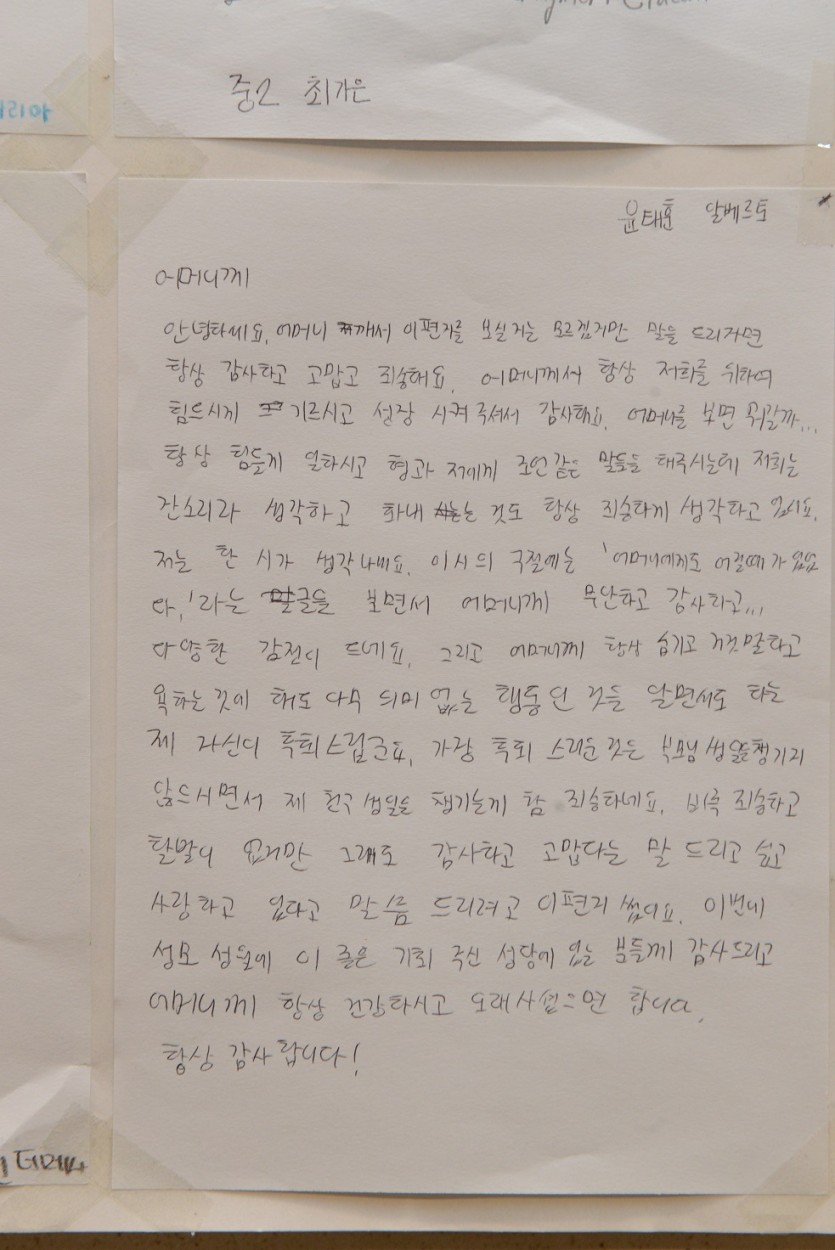 중2 최가은
윤태훈 알베르토
어머니께
안녕하세요, 어머니께서 이편지를 보실지는 모르겠지만 말을 드리자면
항상 감사하고 고맙고 죄송해요. 어머니께서 항상 저희를 위하여
힘드시게 기르시고 성장 시켜 주셔서 감사해요. 어머니를 보면 뭐랄까...
항상 힘들게 일하시고 형과 저에게 조언같은 말들을 해주시는데 저희는
잔소리라 생각하고 화내는 것도 항상 죄송하게 생각하고 있어요.
저는 한 시가 생각나네요. 이시의 구절에는 '어머니에게도 어릴때가 있었
다.'라는 글을 보면서 어머니께 무안하고 감사하고...
다양한 감정이 드네요. 그리고 어머니께 항상 숨기고 거짓말하고
욕하는 것에 해도 아무 의미 없는 행동인 것을 알면서도 하는
제 자신이 후회스럽군요. 가장 후회 스러운 것은 부모님 생일을챙기지
않으시면서 제 친구 생일을 챙기는게 참 죄송하네요. 비록 죄송하고
할말이 없지만 그래도 감사하고 고맙다는 말 드리고 싶고
사랑하고 있다고 말씀 드리려고 이편지 썼어요. 이번에
성모 성월에 이 좋은 기회 주신 성당에 있는 분들께 감사드리고
어머니께 항상 건강하시고 오래사셨으면 합니다.
항상 감사합니다!